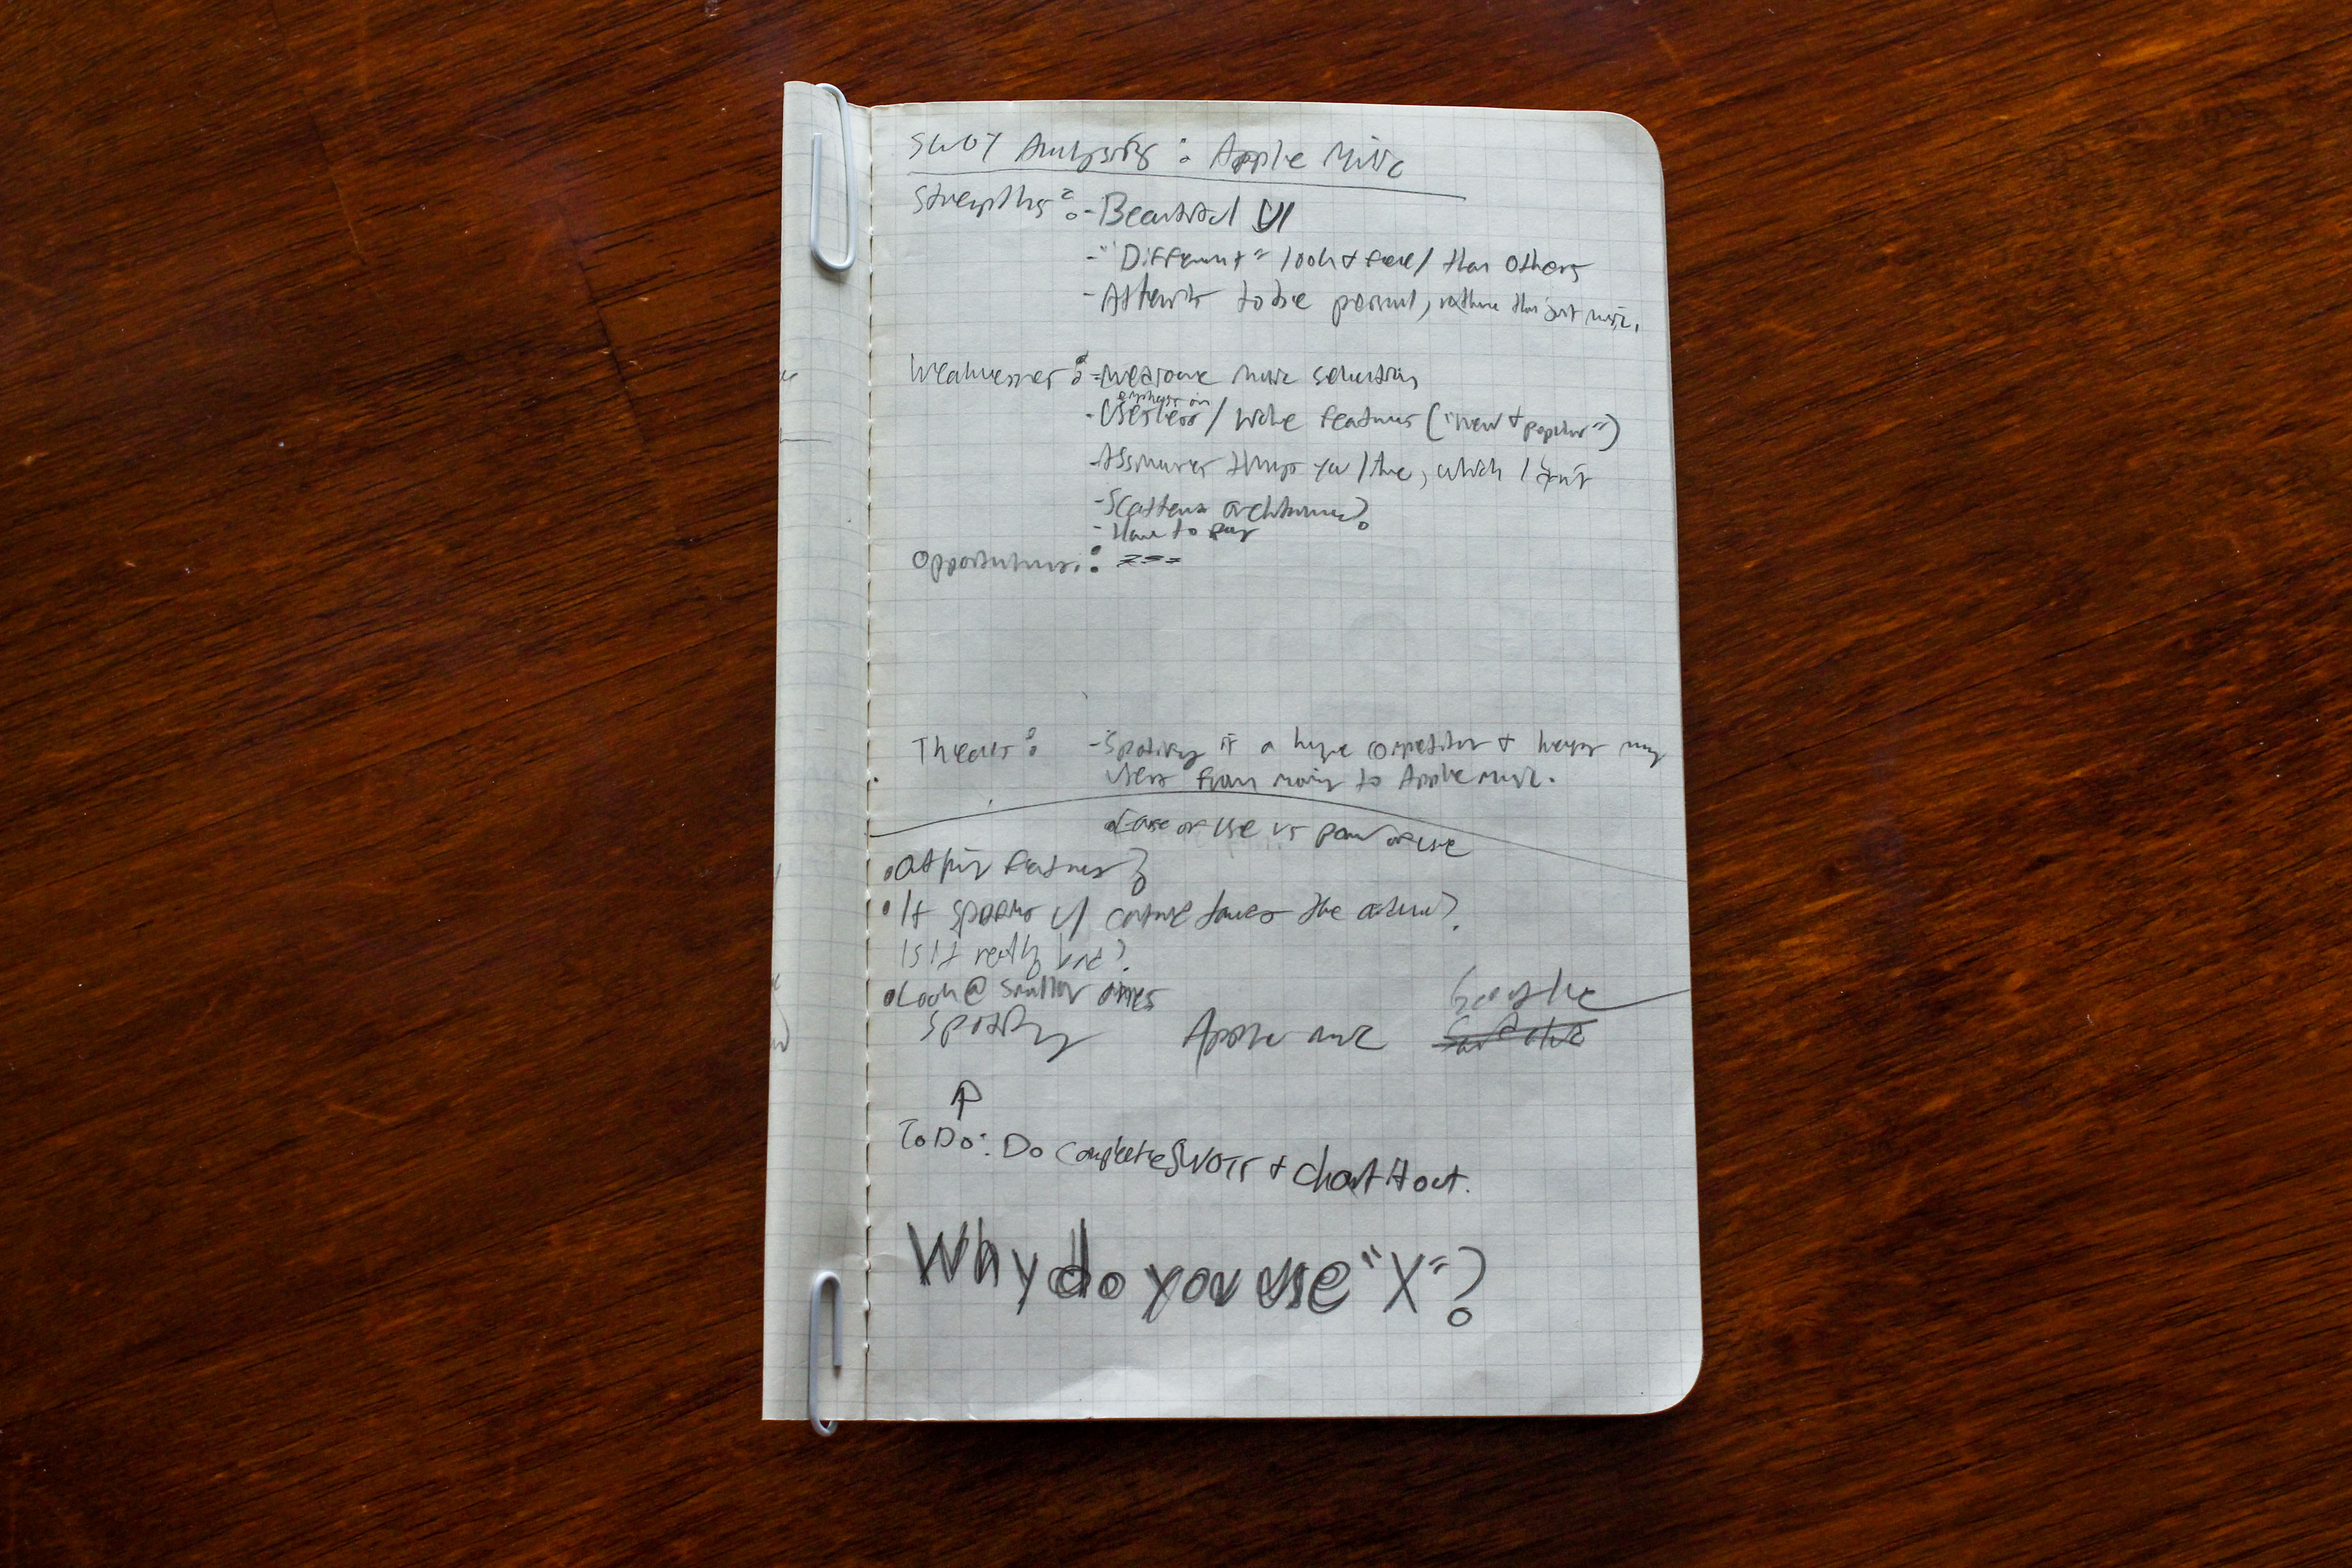 SWOT Analysis: Apple Music
Strengths: - Beautiful UI
- "Different" look + feel than others
- Attempts to be personal, rather than just music.
Weaknesses: - Mediocre music selection
emphasis on
- Useless / niche features ("new + popular")
- Assumes things you like, which I don't
- Scattered architecture?
- Have to pay
Opportunities:
Threats: - Spotify is a huge competitor + keeps many
users from moving to Apple Music.
• Ease of use vs power of use
• features?
• If Spotify w/ takes the
Is it really bad?
• Look @ smaller
Google
Spotify Apple Music
To Do: Do complete SWOTs + chart it out.
Why do you use "X"?